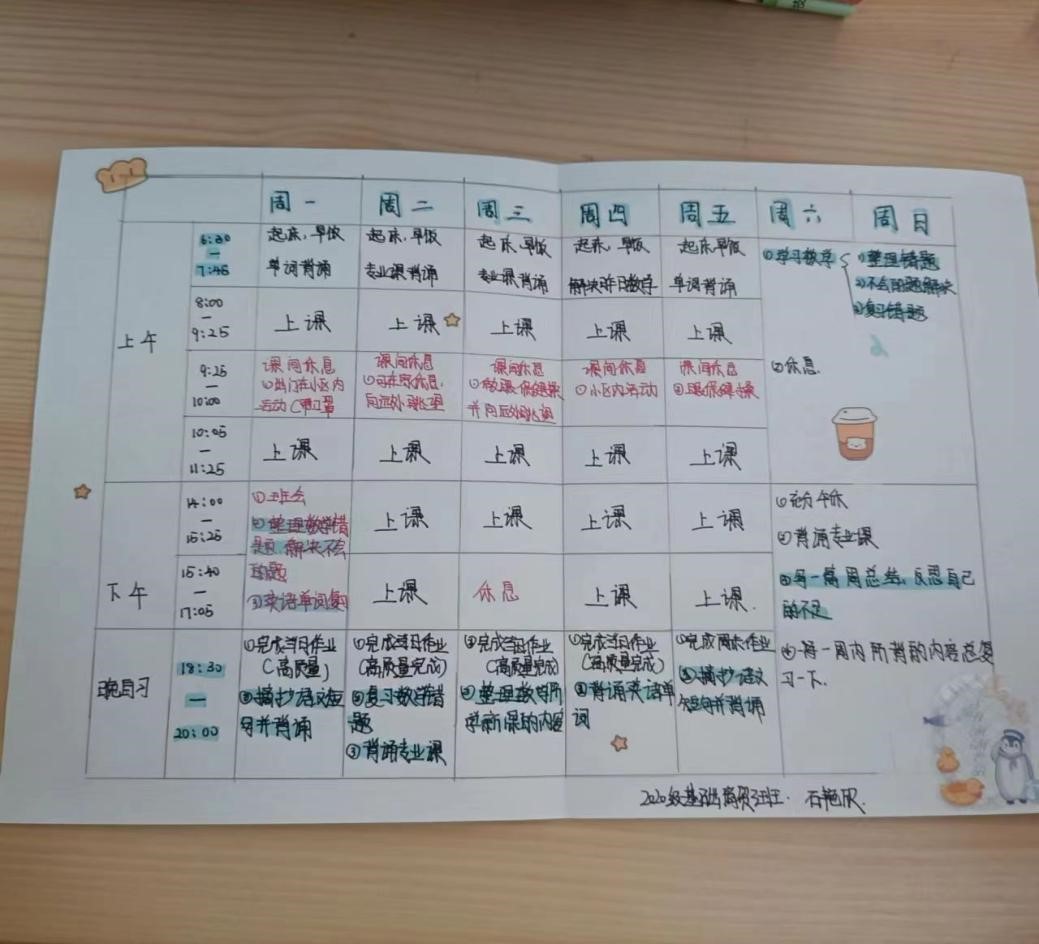 周一 周二 周三 周四 周五 周六 周日
上午
6:30
—
7:45
起床,早饭
单词背诵
起床,早饭
专业课背诵
起床,早饭
专业课背诵
起床,早饭
解决昨日数学
起床,早饭
单词背诵
①学习数学
①整理错题
②不会的题解决
③复习错题
8:00
—
9:25
上课 上课 上课 上课 上课
9:25
—
10:00
课间休息
①出门在小区内
活动(戴口罩
课间休息
①可在家休息,
向远处眺望
课间休息
①做眼保健操
并向远处眺望
课间休息
①小区内活动
课间休息
①眼保健操
②休息.
10:05
—
11:25
上课 上课 上课 上课 上课
下午
14:00
—
15:25
①班会
②整理数学错
题,解决不会
的题
③英语单词复习
上课 上课 上课 上课
①充分午休
②背诵专业课
③写一篇周总结,反思自己
的不足
④将一周内所背的内容总复
习一下.
15:40
—
17:05
上课 休息 上课 上课.
晚自习
18:30
—
20:00
①完成当日作业
(高质量)
②摘抄语文短
句并背诵
①完成当日作业
(高质量完成)
②复习数学错
题
③背诵专业课
①完成当日作业
(高质量完成)
②整理数学所
学新课的内容
①完成当日作业
(高质量完成)
②背诵英语单
词
①完成周末作业
②摘抄语文
短句并背诵
2020级基础商贸2班. 石艳